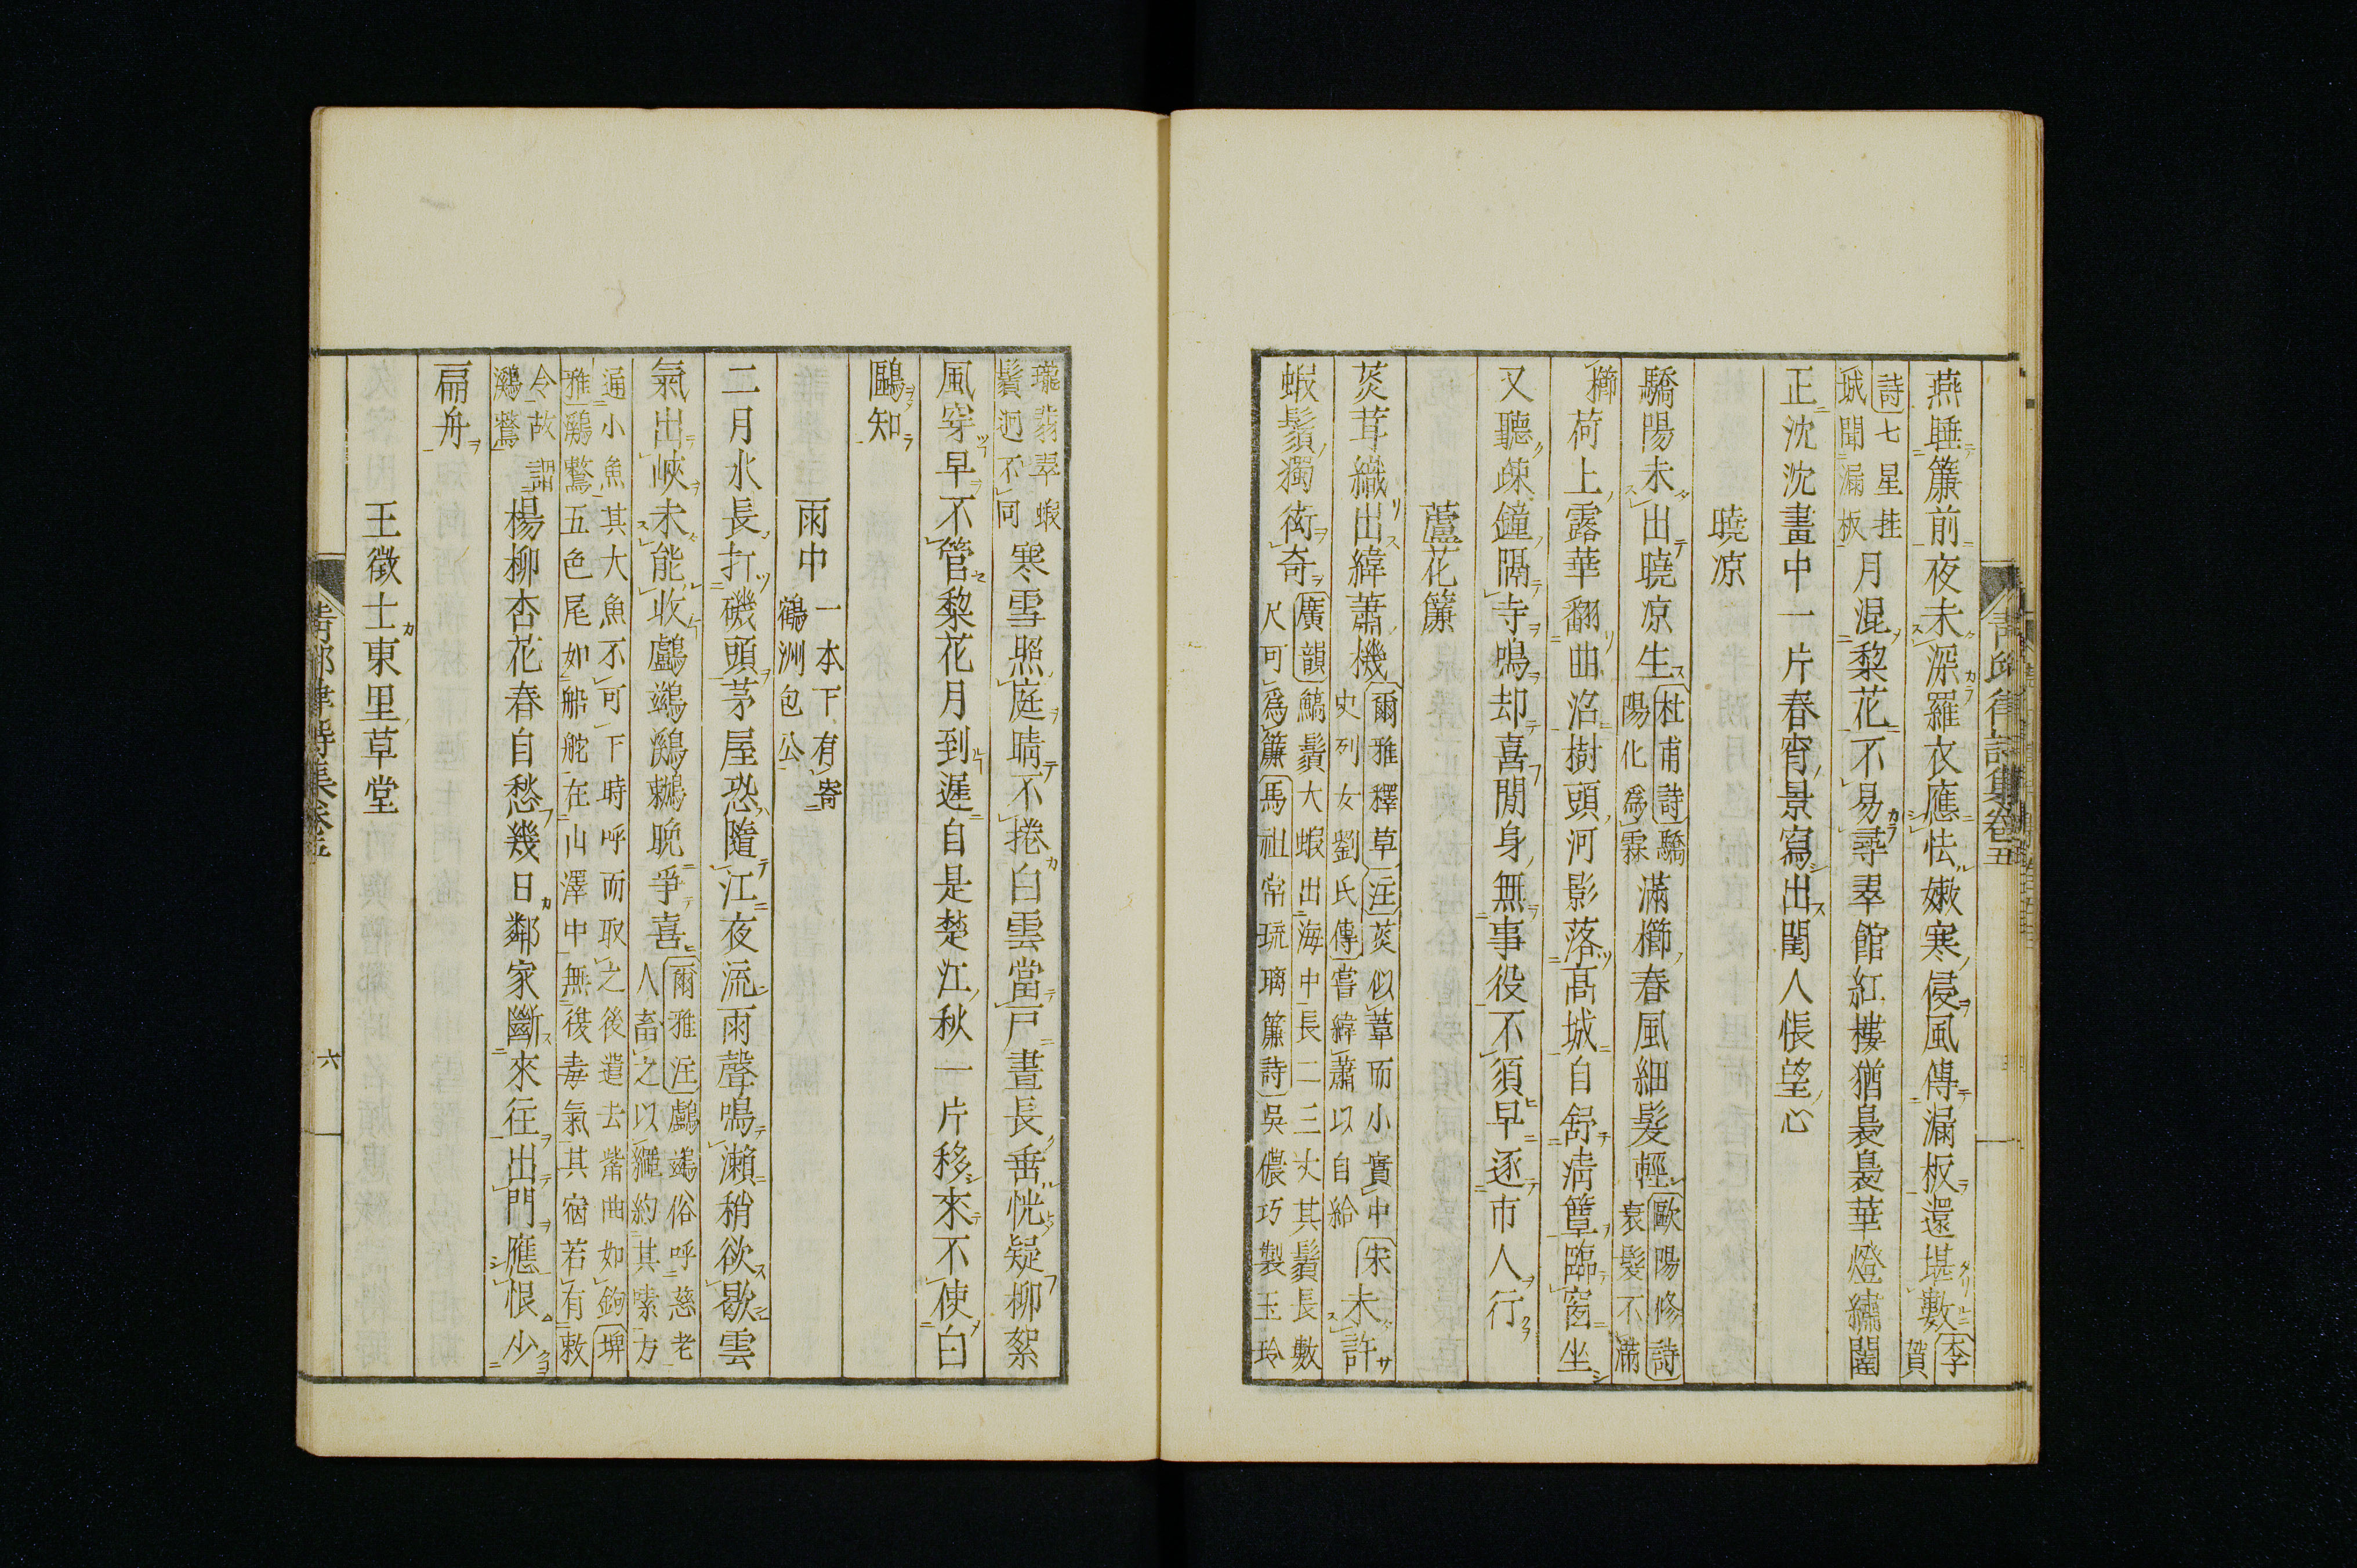 燕睡簾前夜未深羅衣應怯嫩寒侵風傳漏板還堪數李賀
詩七星挂城聞漏板月混棃花不易尋翠館紅樓猶裊裊華燈繡閣
正沈沈畫中一片春宵景寫出閨人悵望心
曉凉
驕陽未出曉凉生杜甫詩驕陽化爲霖滿櫛春風細髮輕歐陽修詩衰髮不滿
櫛荷上露華翻曲沼樹頭河影落高城自舒淸簟臨窗坐
又聽疎鐘隔寺鳴却喜閒身無事役不須早逐市人行
蘆花簾
菼茸織出緯蕭機爾雅釋草注菼似葦而小實中宋史列女劉氏傳嘗緯蕭以自給未許
蝦鬚獨衒奇廣韻鰝鬚大蝦出海中長二三丈其鬚長數尺可爲簾馬祖常琉璃簾詩吳儂巧製玉玲
瓏翡翠蝦鬚迥不同寒雪照庭晴不捲白雲當戸晝長垂恍疑柳絮
風穿早不管棃花月到遲自是楚江秋一片移來不使白
鷗知
雨中一本下有寄鶴洲包公
二月水長打磯頭茅屋恐隨江夜流雨聲鳴瀨稍欲歇雲
氣出峽未能收鸕鷀鸂鶒晚爭喜爾雅注鸕鷀俗呼慈老人畜之以繩約其嗉方
通小魚其大魚不可下時呼而取之後遣去觜曲如鉤埤雅鸂鷘五色尾如船舵在山澤中無復毒氣其宿若有敕
令故謂鸂鷘楊柳杏花春自愁幾日鄰家斷來往出門應恨少
扁舟
王徵士東里草堂
靑邱律詩集卷五
六